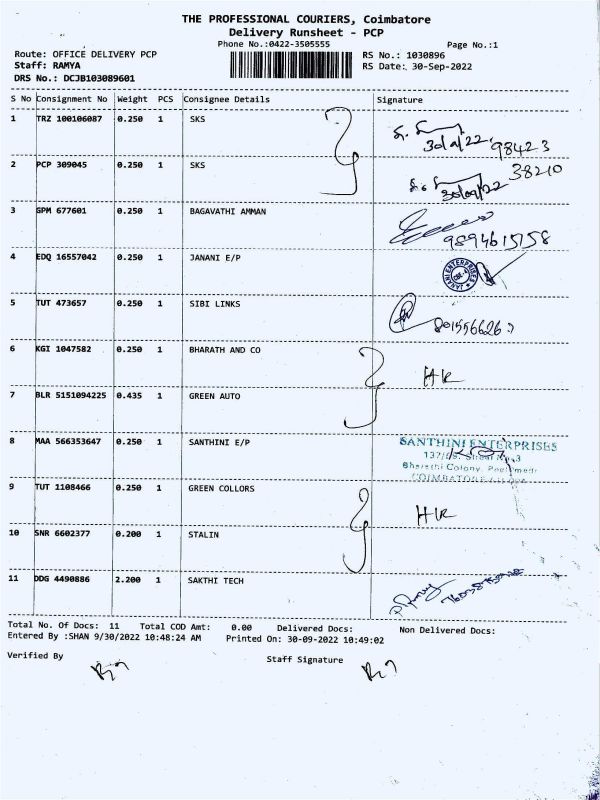 THE PROFESSIONAL COURIERS, Coimbatore
Delivery Runsheet - PCP
Phone No.:0422-3505555 Page No.:1
Route: OFFICE DELIVERY PCP RS No.: 1030896
Staff: RAMYA RS Date: 30-Sep-2022
DRS No.: DCJB103089601
S No Consignment No Weight PCS Consignee Details Signature
1 TRZ 100106087 0.250 1 SKS
30/9/22 98423
38210
2 PCP 309045 0.250 1 SKS
30/09/22
3 GPM 677601 0.250 1 BAGAVATHI AMMAN
9894615158
4 EDQ 16557042 0.250 1 JANANI E/P
JANANI ENTERPRISES CBE
5 TUT 473657 0.250 1 SIBI LINKS
6 KGI 1047582 0.250 1 BHARATH AND CO
HR
7 BLR 5151094225 0.435 1 GREEN AUTO
8 MAA 566353647 0.250 1 SANTHINI E/P
SANTHINI ENTERPRISES
Bharathi Colony,
COIMBATORE
9 TUT 1108466 0.250 1 GREEN COLLORS
HR
10 SNR 6602377 0.200 1 STALIN
11 DDG 4490886 2.200 1 SAKTHI TECH
Total No. Of Docs: 11 Total COD Amt: 0.00 Delivered Docs: Non Delivered Docs:
Entered By :SHAN 9/30/2022 10:48:24 AM Printed On: 30-09-2022 10:49:02
Verified By Staff Signature